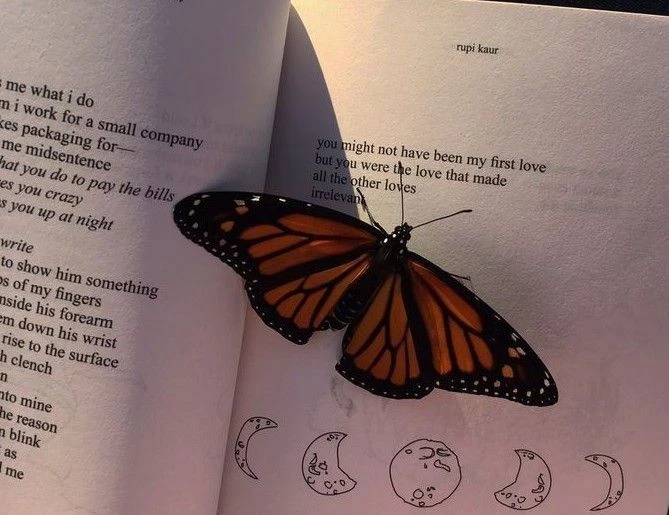 s me what i do
m i work for a small company
kes packaging for—
me midsentence
hat you do to pay the bills
es you crazy
s you up at night
write
to show him something
os of my fingers
nside his forearm
em down his wrist
rise to the surface
h clench
n
nto mine
he reason
n blink
as
l me
rupi kaur
you might not have been my first love
but you were the love that made
all the other loves
irrelevant